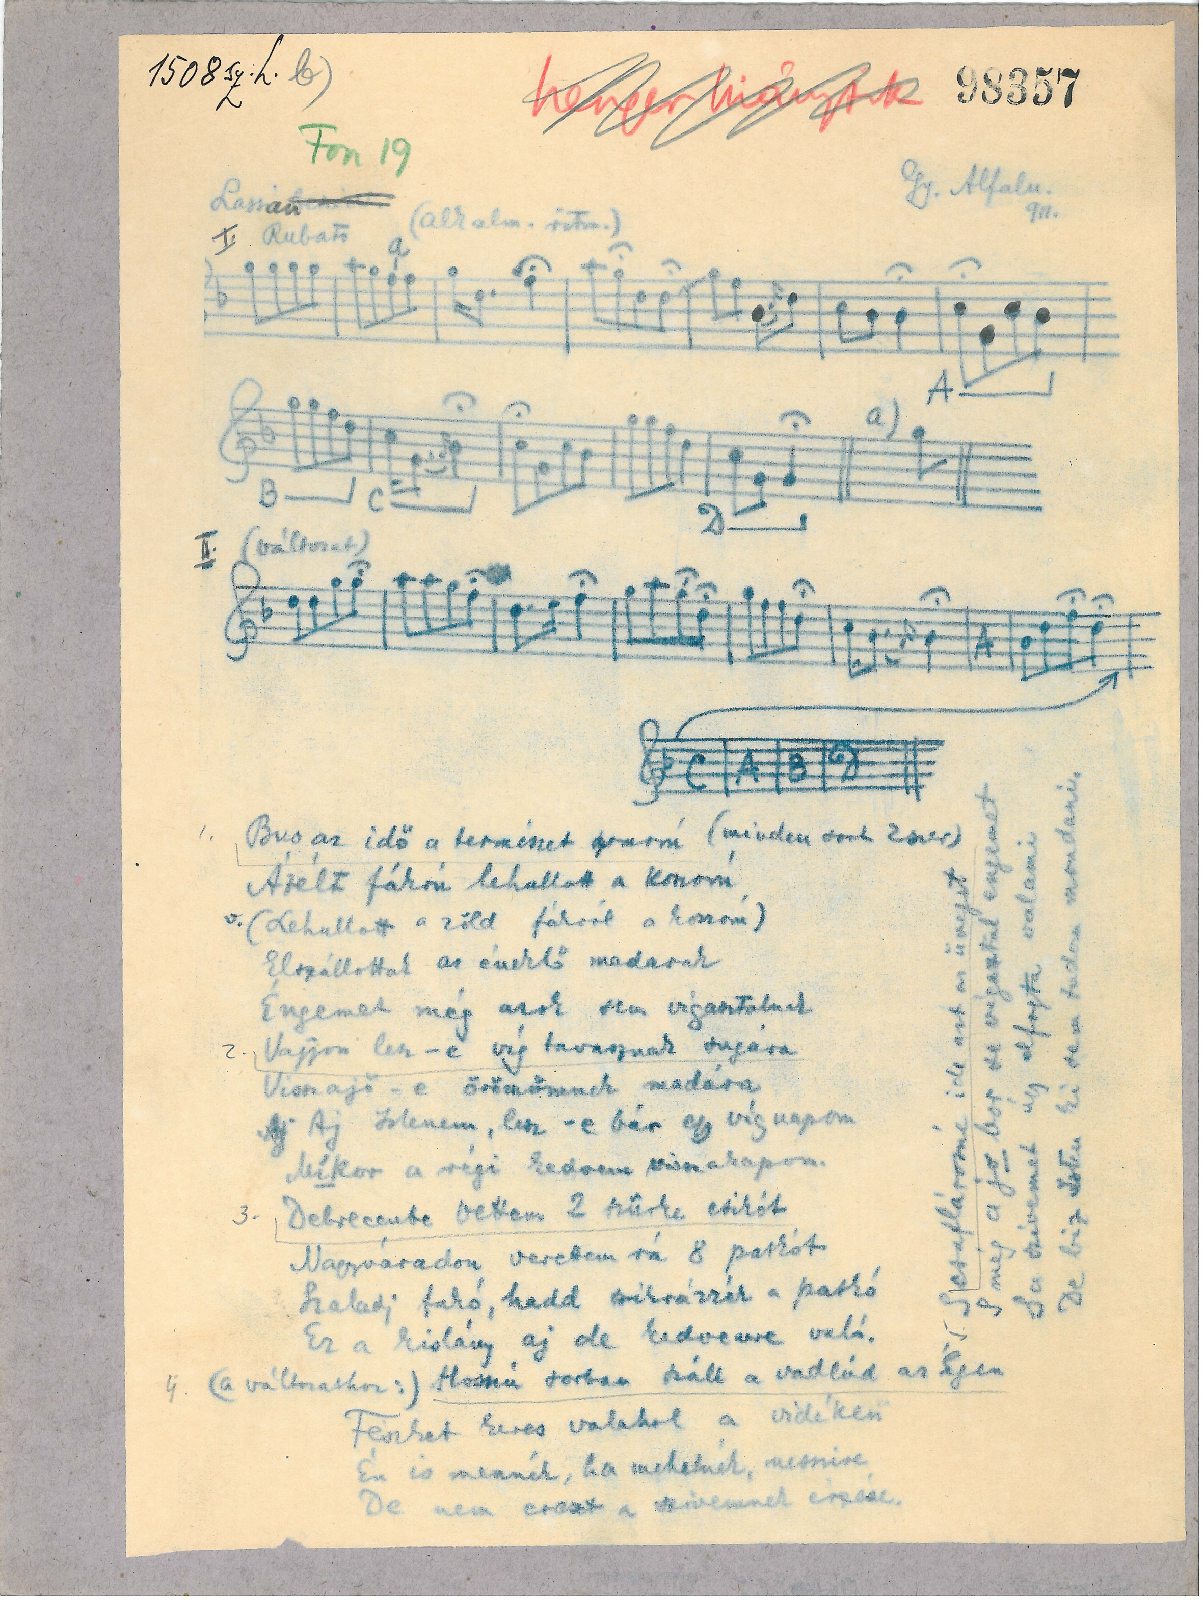 1508 sz. h. b)
98357
Fon 19
Gy. Alfalu.
911.
Lassan
I. Rubato (alkalm. ritm.)
a
A
a)
B C
D
II. (változat)
A
C A B D
1. Bus az idő a természet szomorú (minden sort 2szer)
A zöld fákrú lehullott a koszorú
v. (Lehullott a zöld fákról a koszorú)
Elszállottak az éneklő madarak
Engemet még azok sem vígasztalnak
2. Vajjon lesz-e víg tavasznak sugára
Visszajő-e örömömnek madára
Aj Istenem, lesz-e bár egy víg napom
Mikor a régi kedvem visszakapom.
3. Debrecenbe vettem 2 szürke csikót
Nagyváradon verettem rá 8 patkót
Szaladj fakó, hadd szikrázzék a patkó
Ez a kislány aj de kedvemre való.
4. (a változathoz:) Hosszú sorban száll a vadlúd az égen
Fészket keres valahol a vidéken
Én is mennék, ha mehetnék, messzire
De nem ereszt a szivemnek érzése.
5. Korcsmárosné ide azt az üveget
S még a jó bor se vígasztal engemet
Sa szivemet úgy elfogta valami
De biz Isten ki sem tudom mondani.